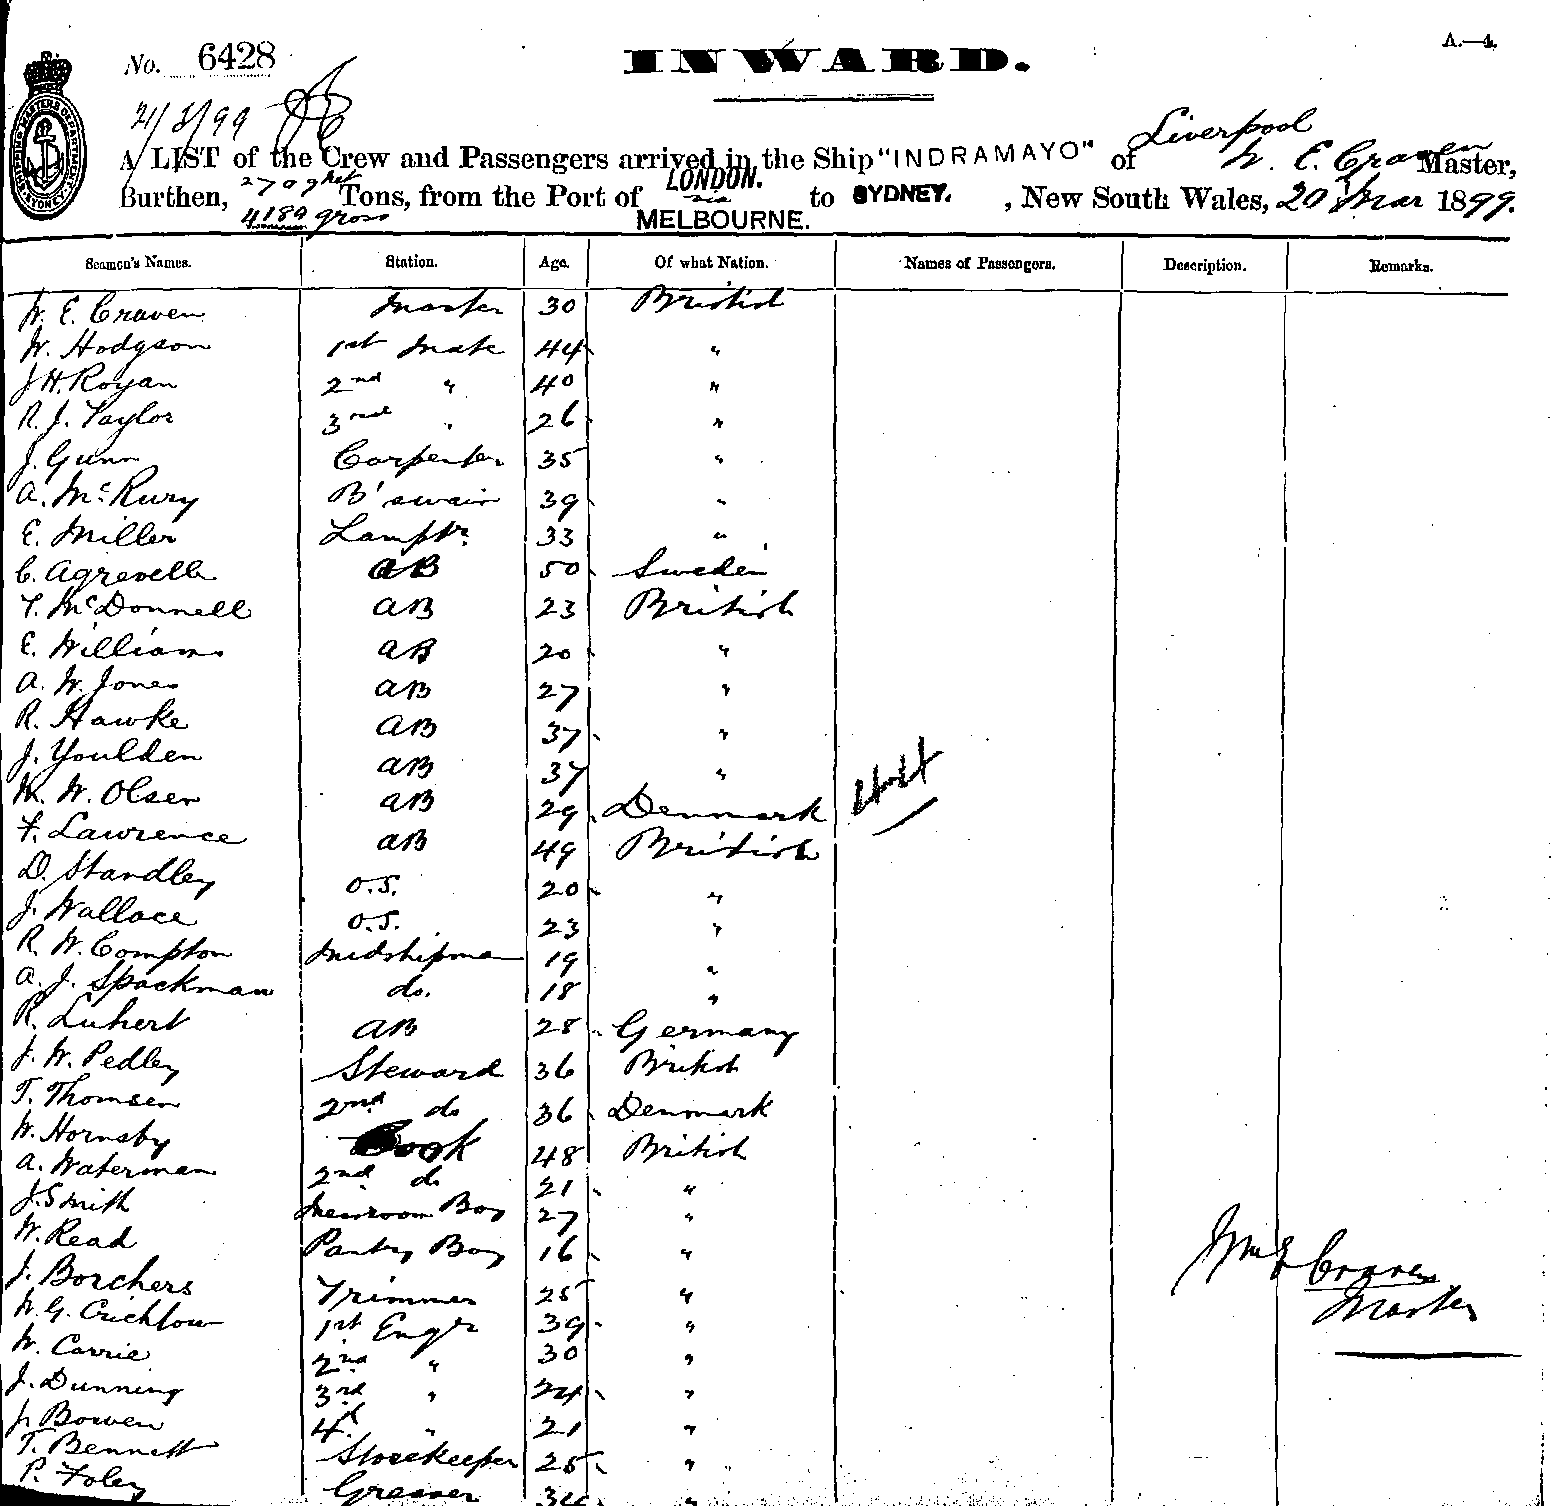 No. 6428
INWARD.
A.—4.
21/3/99
A LIST of the Crew and Passengers arrived in the Ship "INDRAMAYO" of Liverpool W. E. Craven Master,
Burthen, 2709 net 4189 gross Tons, from the Port of LONDON. via MELBOURNE. to SYDNEY. , New South Wales, 20 Mar 1899.
Seamen's Names. Station. Age. Of what Nation. Names of Passengers. Description. Remarks.
W. E. Craven Master 30 British
W. Hodgson 1st Mate 44 "
J. H. Royan 2nd " 40 "
R. J. Taylor 3rd " 26 "
J. Gunn Carpenter 35 "
A. McRury B'swain 39 "
E. Miller Lamptr. 33 "
C. Agrevelle AB 50 Sweden
T. McDonnell AB 23 British
E. Williams AB 20 "
A. W. Jones AB 27 "
R. Hawke AB 37 "
J. Youlden AB 37 "
W. Olsen AB 29 Denmark
F. Lawrence AB 49 British
D. Standley O.S. 20 "
J. Wallace O.S. 23 "
R. W. Compton Midshipman 19 "
A. J. Spackman do. 18 "
R. Luhert AB 28 Germany
J. W. Pedley Steward 36 British
T. Thomsen 2nd do 36 Denmark
W. Hornsby Cook 48 British
A. Waterman 2nd do 21 "
J. Smith Messroom Boy 27 "
W. Read Pantry Boy 16 "
J. Borchers Trimmer 25 "
W. G. Crichlow 1st Engr 39 "
W. Carrie 2nd " 30 "
J. Dunning 3rd " 24 "
J. Bowen 4th " 21 "
T. Bennett Storekeeper 25 "
P. Foley Greaser 34 "
Wm E Craven
Master